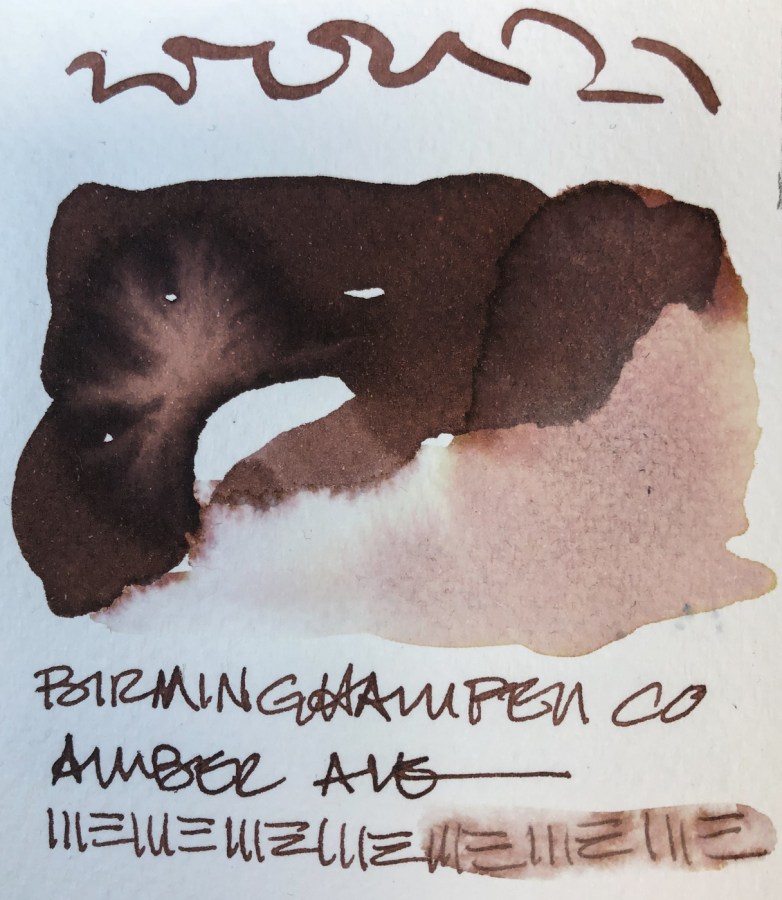 BIRMINGHAM PEN CO
AMBER AVE